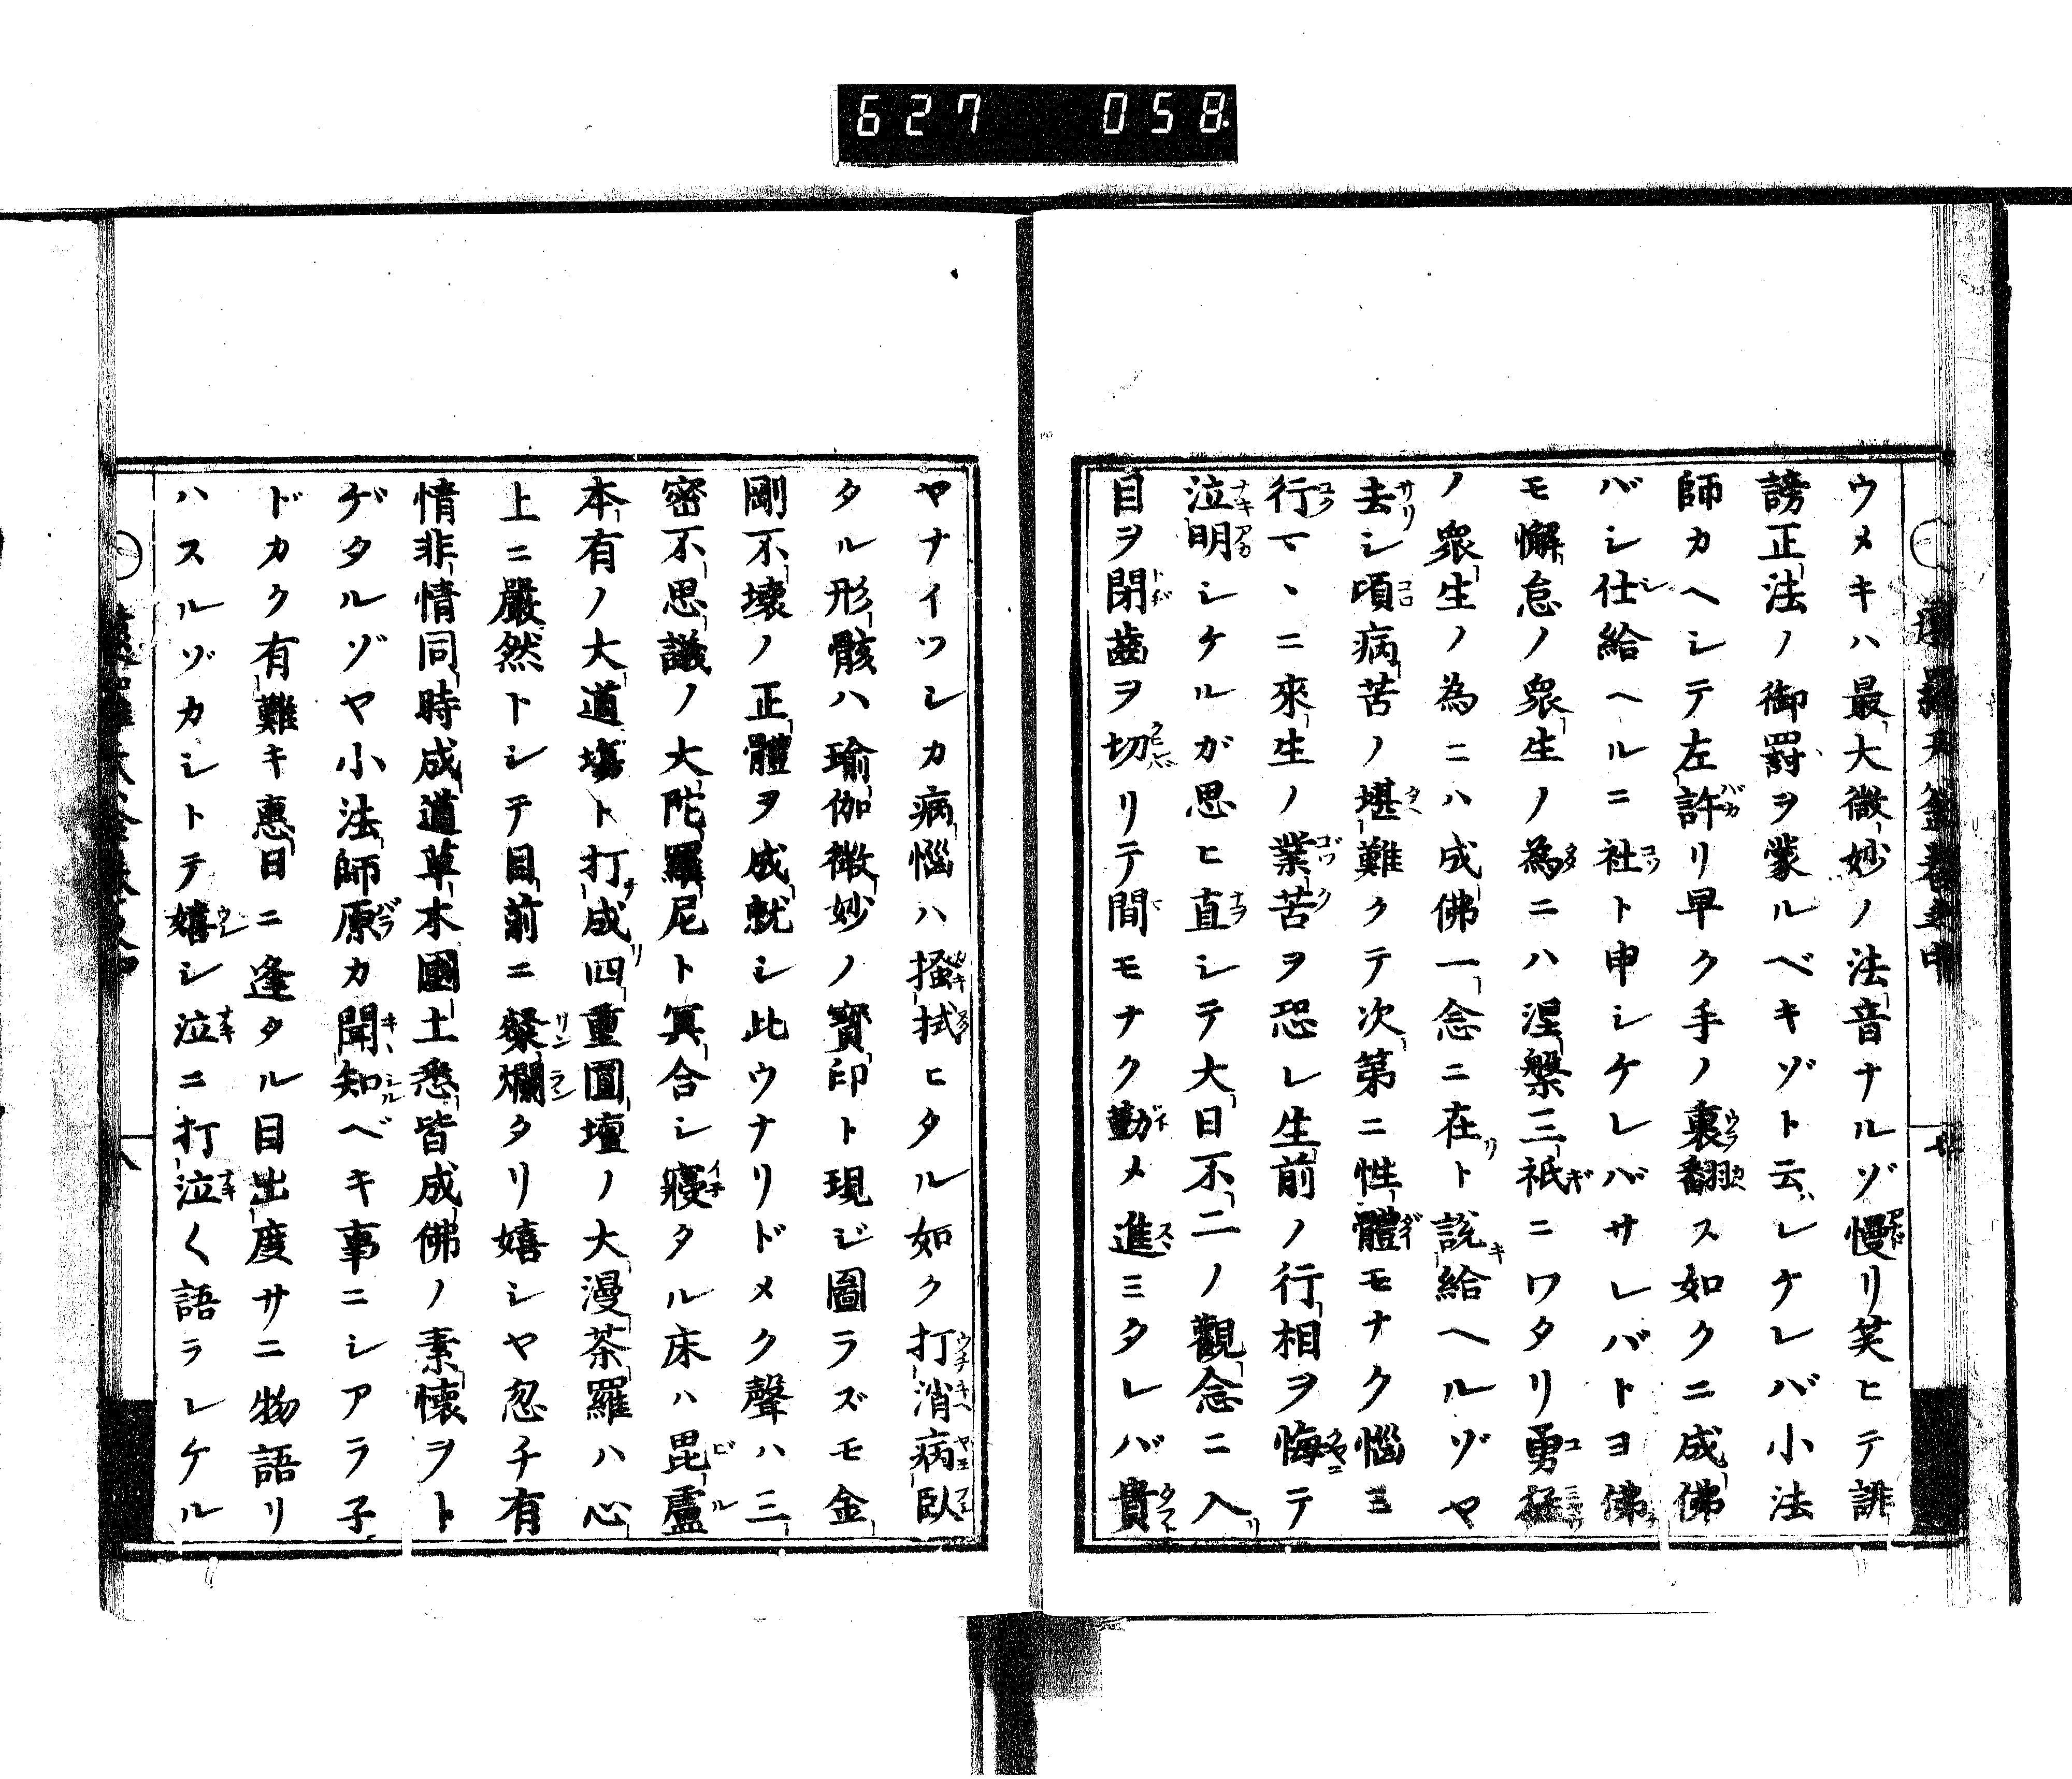 627 058
ウメキハ最大微妙ノ法音ナルゾ慢リ笑ヒテ誹
謗正法ノ御罸ヲ蒙ルベキゾト云レケレバ小法
師カヘシテ左許リ早ク手ノ裏翻ス如クニ成佛
バシ仕給ヘルニ社ト申シケレバサレバトヨ佛
モ懈怠ノ衆生ノ為ニハ涅槃三祇ニワタリ勇猛
ノ衆生ノ為ニハ成佛一念ニ在ト説給ヘルゾヤ
去シ頃病苦ノ堪難クテ次第ニ性體モナク惱ミ
行マヽニ來生ノ業苦ヲ恐レ生前ノ行相ヲ悔テ
泣明シケルガ思ヒ直シテ大日不二ノ觀念ニ入
目ヲ閉齒ヲ切リテ間モナク勤メ進ミタレバ貴
ヤナイツシカ病惱ハ掻拭ヒタル如ク打消病臥
タル形骸ハ瑜伽微妙ノ寳印ト現ジ圖ラズモ金
剛不壞ノ正體ヲ成就シ此ウナリドメク聲ハ三
密不思議ノ大陀羅尼ト冥合シ寢タル床ハ毘盧
本有ノ大道場ト打成四重圓壇ノ大漫荼羅ハ心
上ニ嚴然トシテ目前ニ粲爛タリ嬉シヤ忽チ有
情非情同時成道草木國土悉皆成佛ノ素懷ヲト
ゲタルゾヤ小法師原カ聞知ベキ事ニシアラ子
ドカク有難キ惠日ニ逢タル目出度サニ物語リ
ハスルゾカシトテ嬉シ泣ニ打泣く語ラレケル